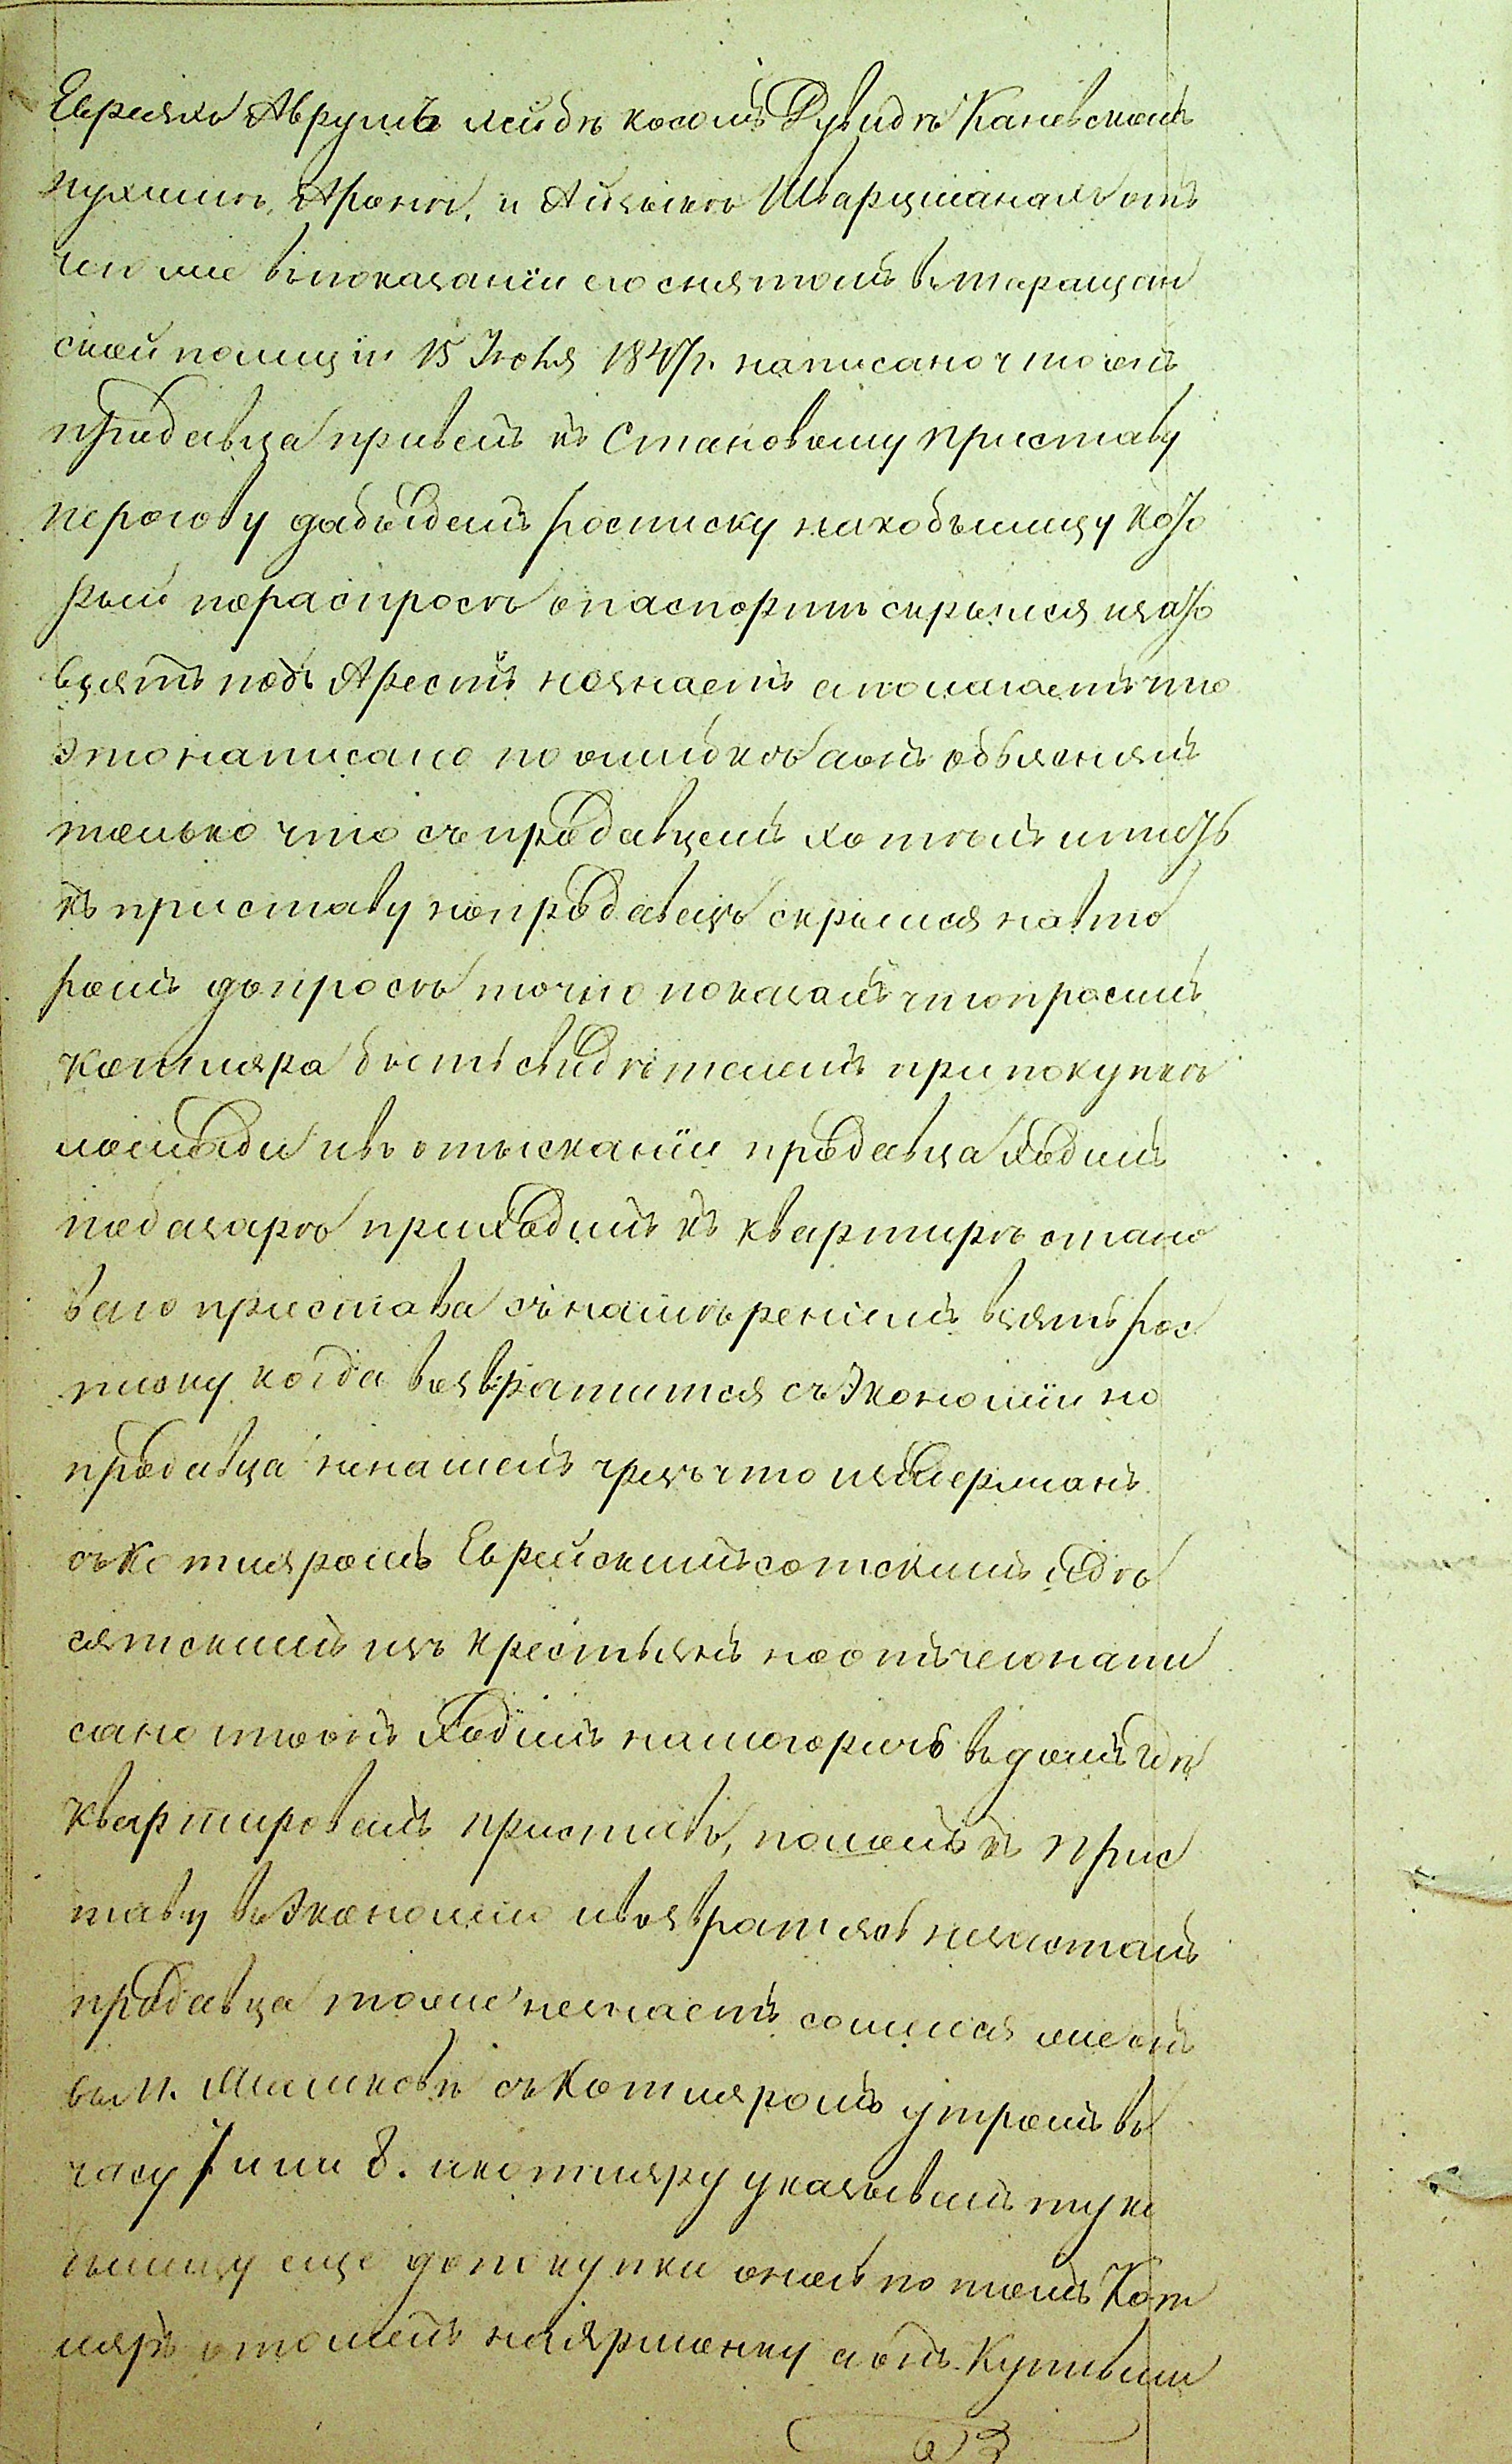 Евреяхъ Аврумъ Лейбъ косомъ Дувидъ Каневскомъ
Аронъ, и Айзикъ Шварцманахъ отъ
чего же въ показаніи его снятомъ въ таращан
ской полиціи 15 Іюля 1847 г. написано что онъ
продавца привелъ къ Становому приставу
перогову дабы далъ росписку на кобылицу кото
рый по распросѣ о паспортѣ скрылся изъ
взятъ подъ Арестъ незнаетъ а полагаетъ что
это написано по ошибкѣ а онъ объяснялъ
только что съ продавцемъ хотѣлъ итить
къ приставу но продавецъ скрылся на вто
ромъ допросѣ точно показалъ что просилъ
Котляра быть свидѣтелемъ при покупкѣ
лошади и въ отысканіи продавца ходилъ
по базарѣ приходилъ къ квартирѣ стано
ваго пристава съ намѣреніемъ взять рос
писку когда возвратится съ Экономіи но
продавца ненашелъ чрезъ что и задержанъ
съ Котляромъ Еврейскимъ сотскимъ и деся
сятскимъ изъ крестьянъ но отъ чего напи
сано что онъ ходилъ на могоричъ въ домъ гдѣ
квартировалъ приставъ, пошелъ къ прис
таву въ Экономію и возвратясь незасталъ
продавца тоже незнаетъ сошелся же онъ
въ м. съ Котляромъ утромъ въ
часу 7 или 8. и котляру указывалъ ту ко
былицу еще до покупки оной потомъ Кот
ляръ отошелъ на ярмонку а онъ Купивши